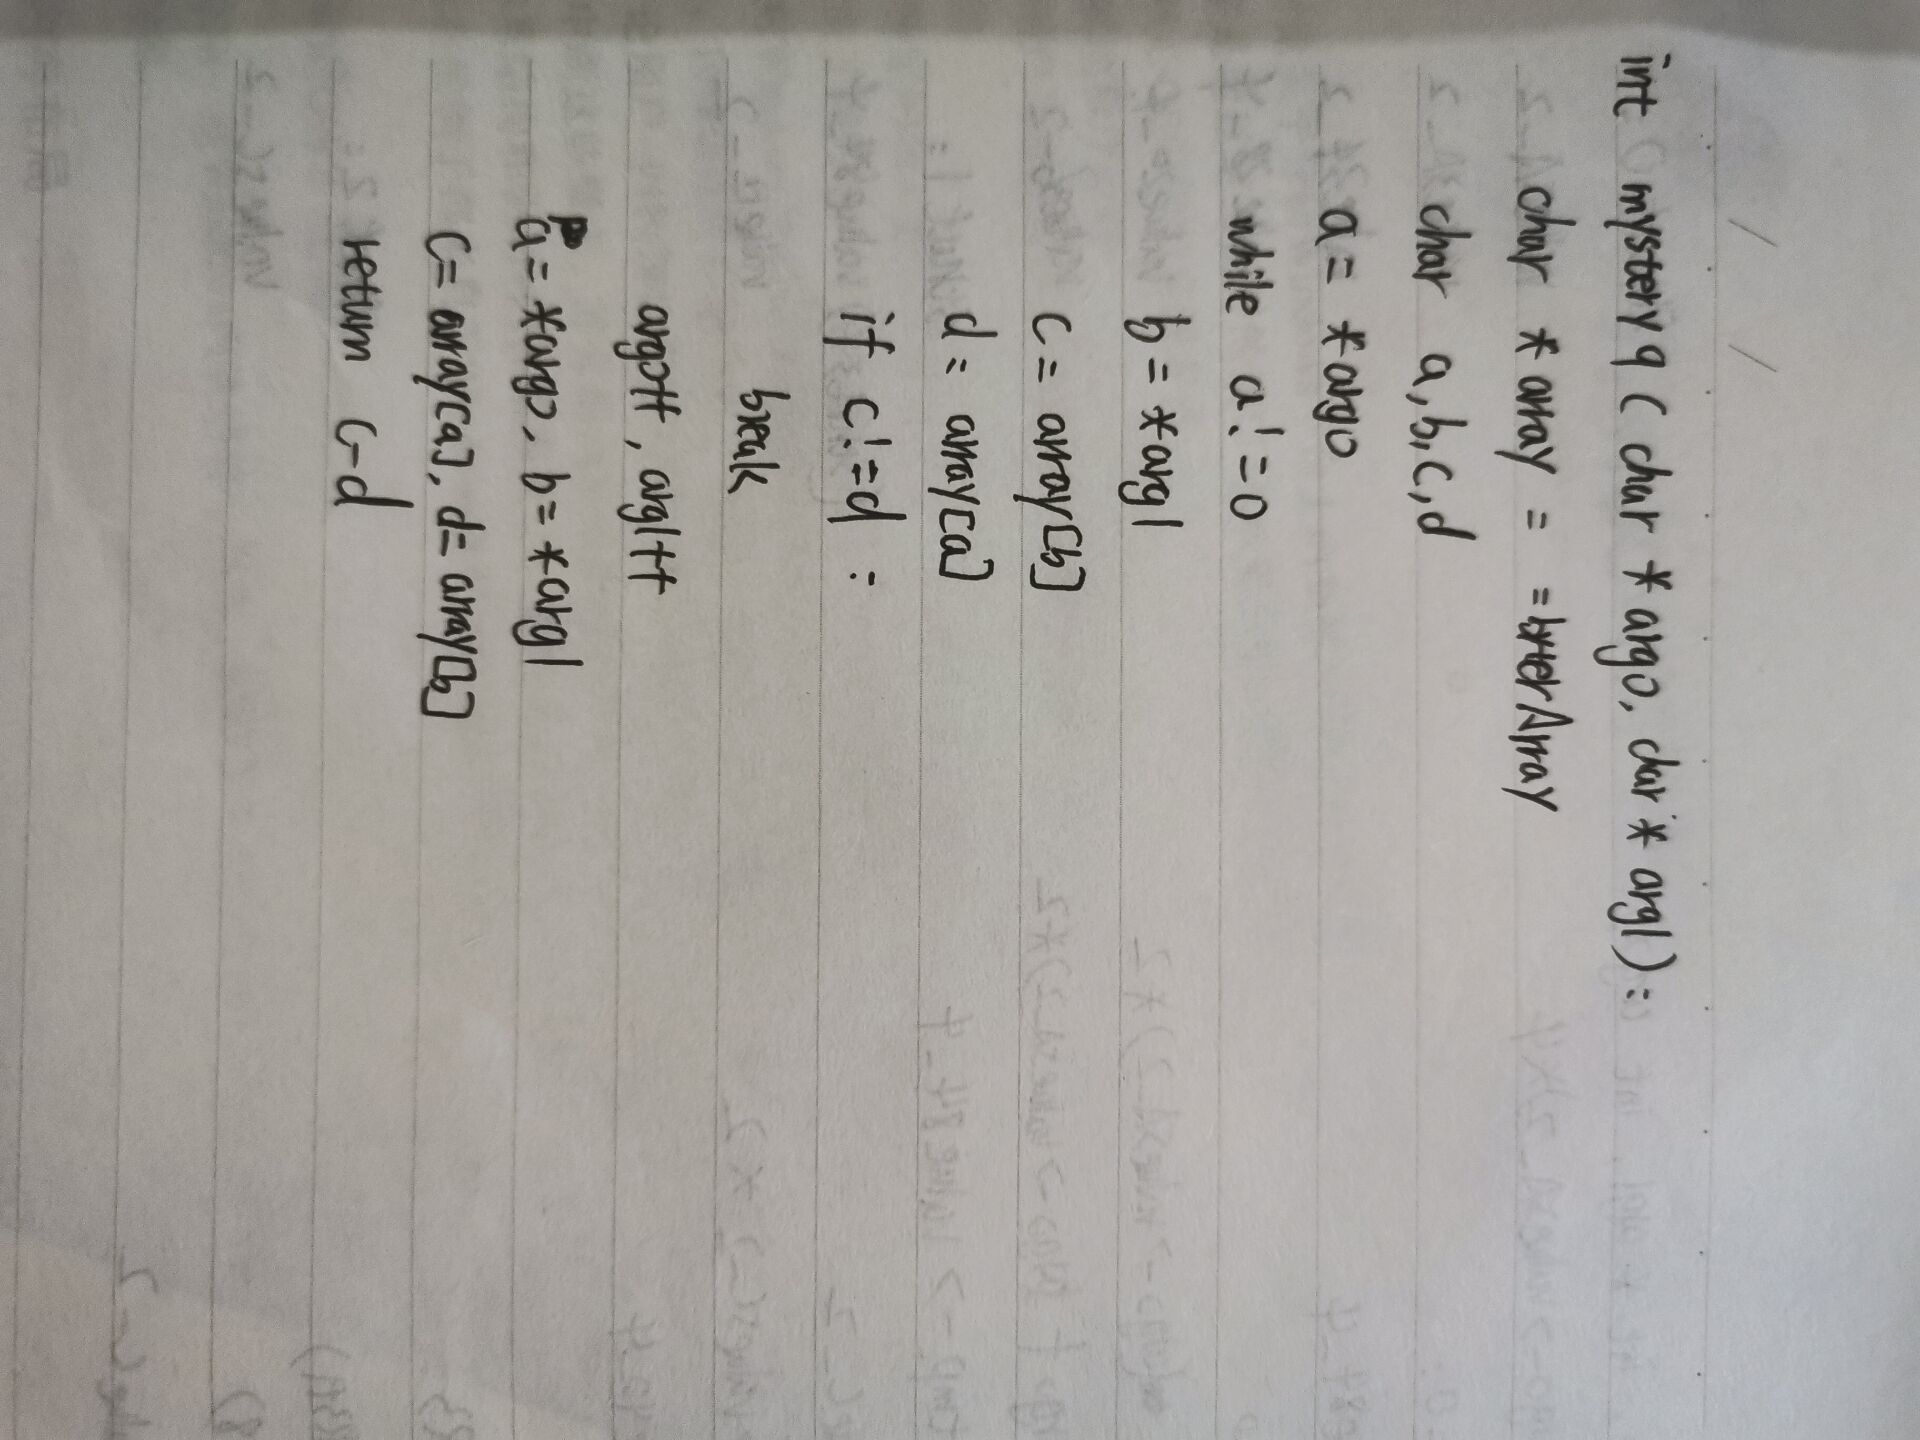 / /
int mystery9 ( char * arg0, char * arg1 ) :
char * array = = Array
char a, b, c, d
a = * arg0
while a != 0
b = * arg1
c = array[b]
d = array[a]
if c != d :
break
arg0++ , arg1++
a = * arg0, b = * arg1
c = array[a], d = array[b]
return c-d